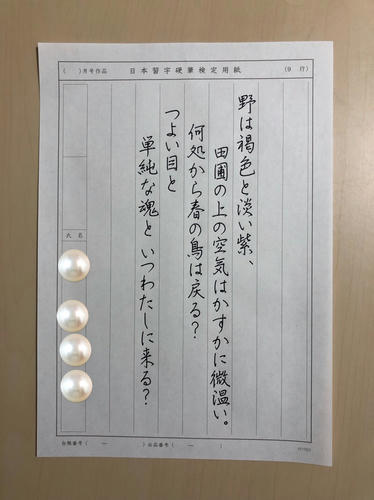 日本習字硬筆検定用紙
(9 行)
( )月号作品
野は褐色と淡い紫、
田圃の上の空気はかすかに微温い。
何処から春の鳥は戻る？
つよい目と
単純な魂と いつわたしに来る？
氏名
会員番号( ー )出品番号( ー )